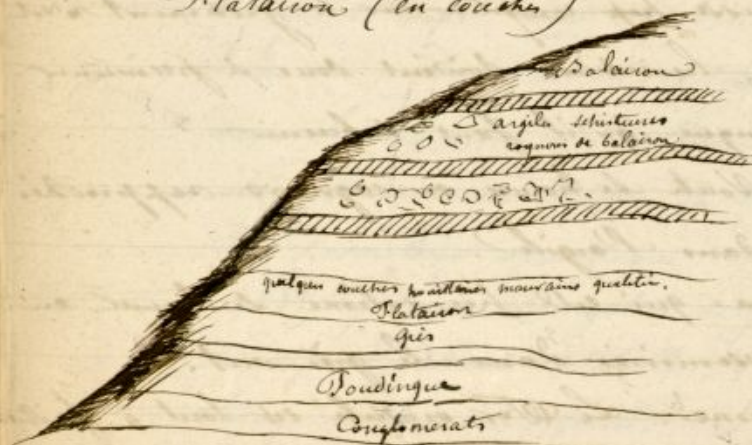 Flataison (en couches)
Balaison
argiles schisteuses
rognons de balaison
quelques couches houillères mauvaise qualité.
Flataison
Grès
Poudingue
Conglomerats